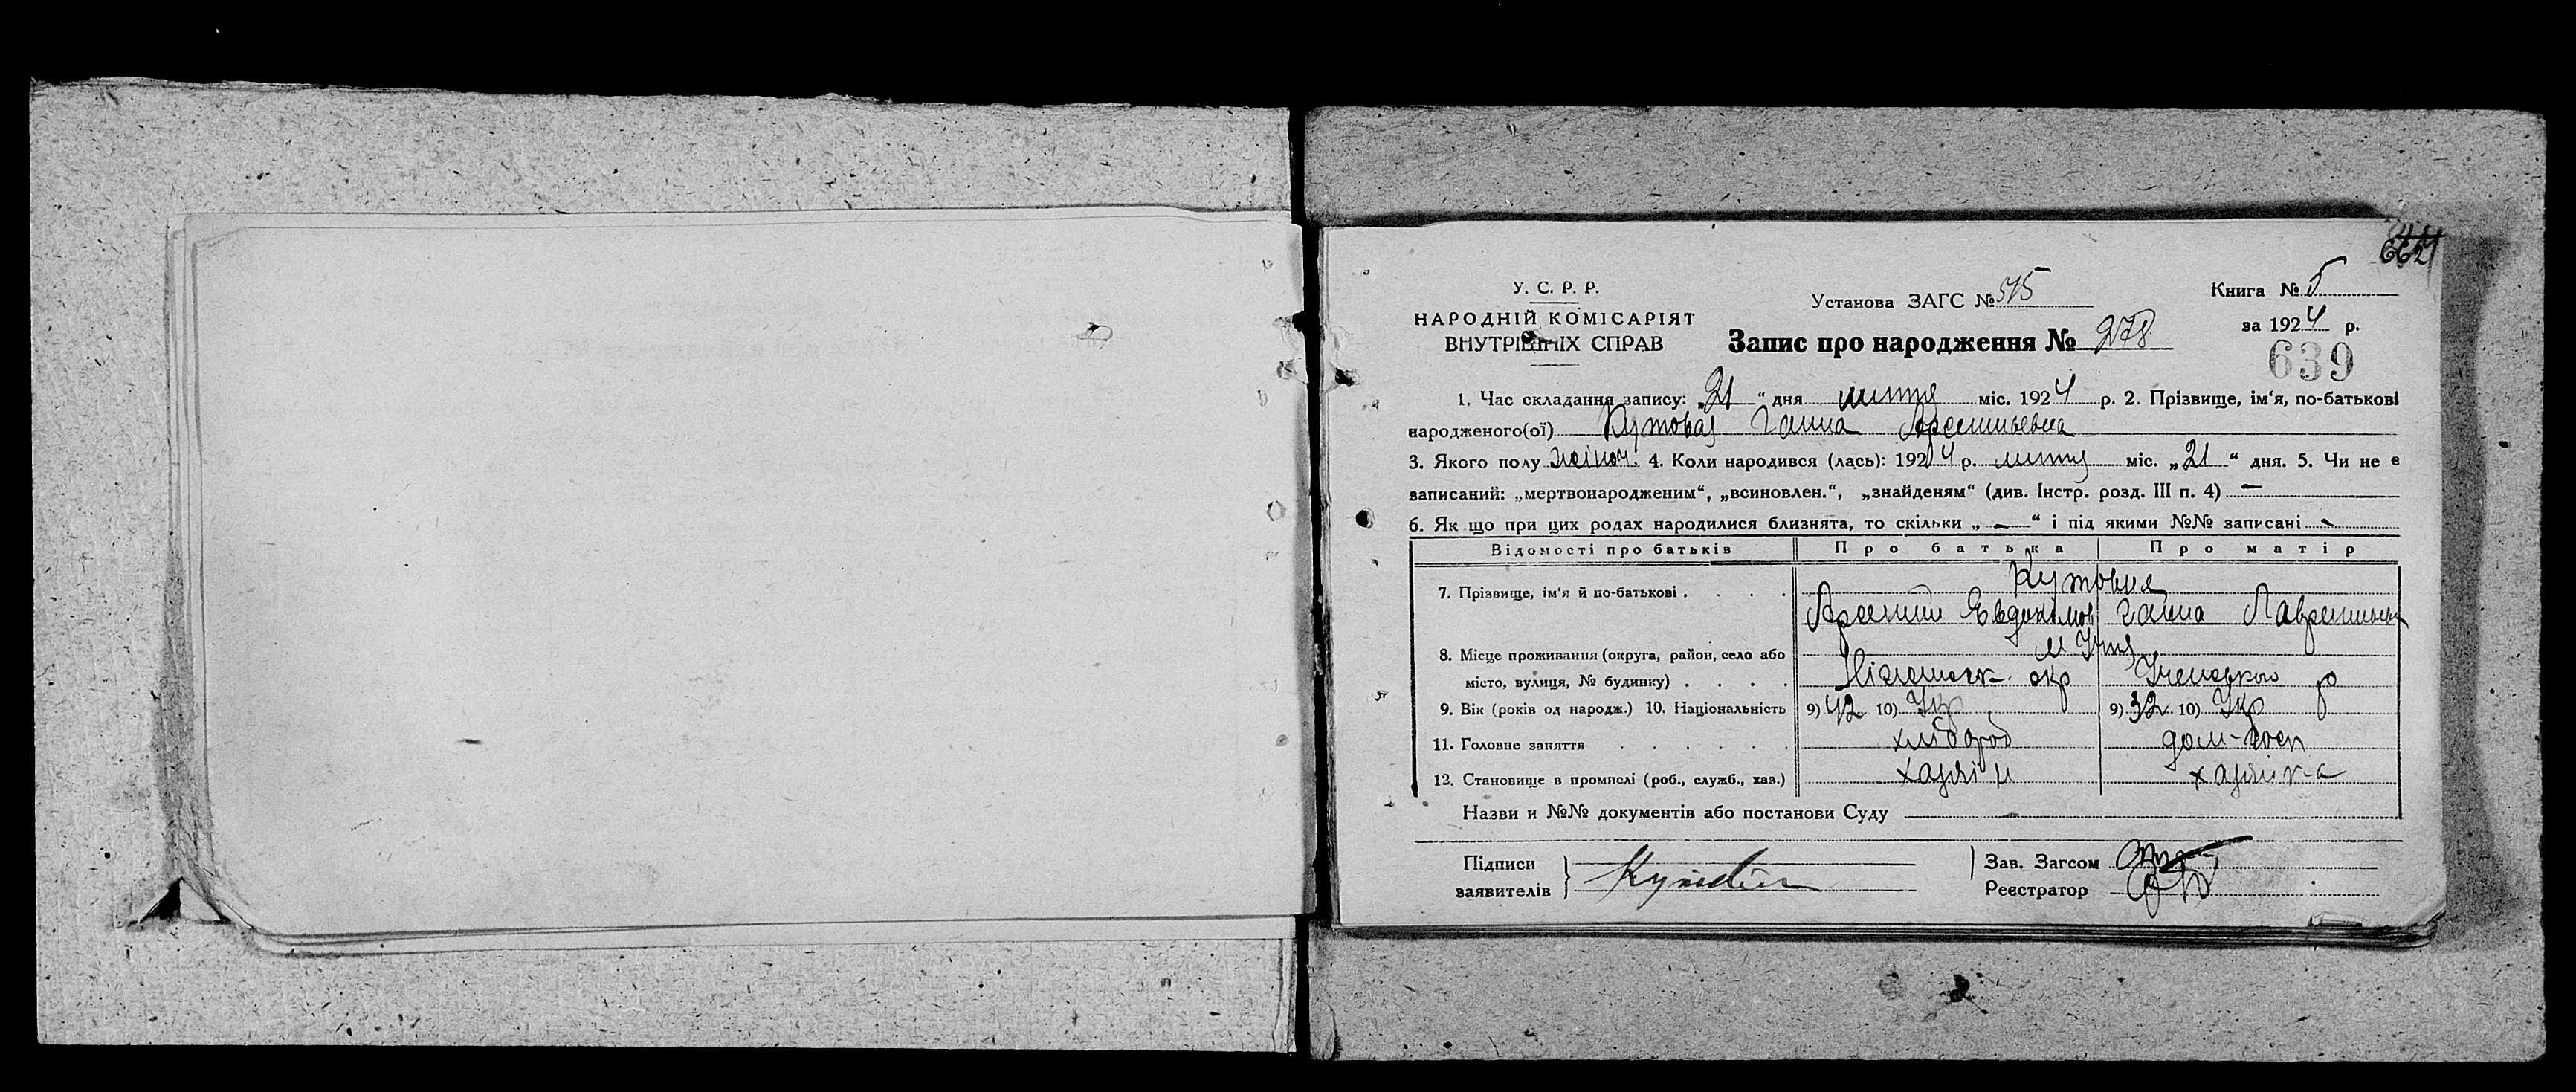 У. С. Р. Р.
НАРОДНІЙ КОМІСАРІЯТ
ВНУТРІШНІХ СПРАВ
Установа ЗАГС № 515
Запис про народження № 278
Книга № 5
за 1924 р.
639
1. Час складання запису: „21“ дня липня міс. 1924 р. 2. Прізвище, ім‘я, по-батькові
народженого(ої) Кутовая Ганна Арсеньевна
3. Якого полу жіноч. 4. Коли народився (лась): 1924 р. липня міс. „21“ дня. 5. Чи не є
записаний: „мертвонародженим“, „всиновлен.“, „знайденям“ (див. Інстр. розд. III п. 4) —
6. Як що при цих родах народилися близнята, то скільки „—“ і під якими №№ записані -
Відомості про батьків Про батька Про матір
Кутовия
7. Прізвище, ім‘я й по-батькові . . . .
Арсений Евдокимов Ганна Лаврентьевн
8. Місце проживання (округа, район, село або
місто, вулиця, № будинку) . . . . окр р
9. Вік (років од народж.) 10. Національність 9) 42 10) Укр 9) 32 10) Укр
11. Головне заняття . . . . . . хлібороб дом-госп
12. Становище в промислі (роб., служб., хаз.) хазяїн хазяйка
Назви и №№ документів або постанови Суду
Підписи
заявителів
Зав. Загсом
Реєстратор